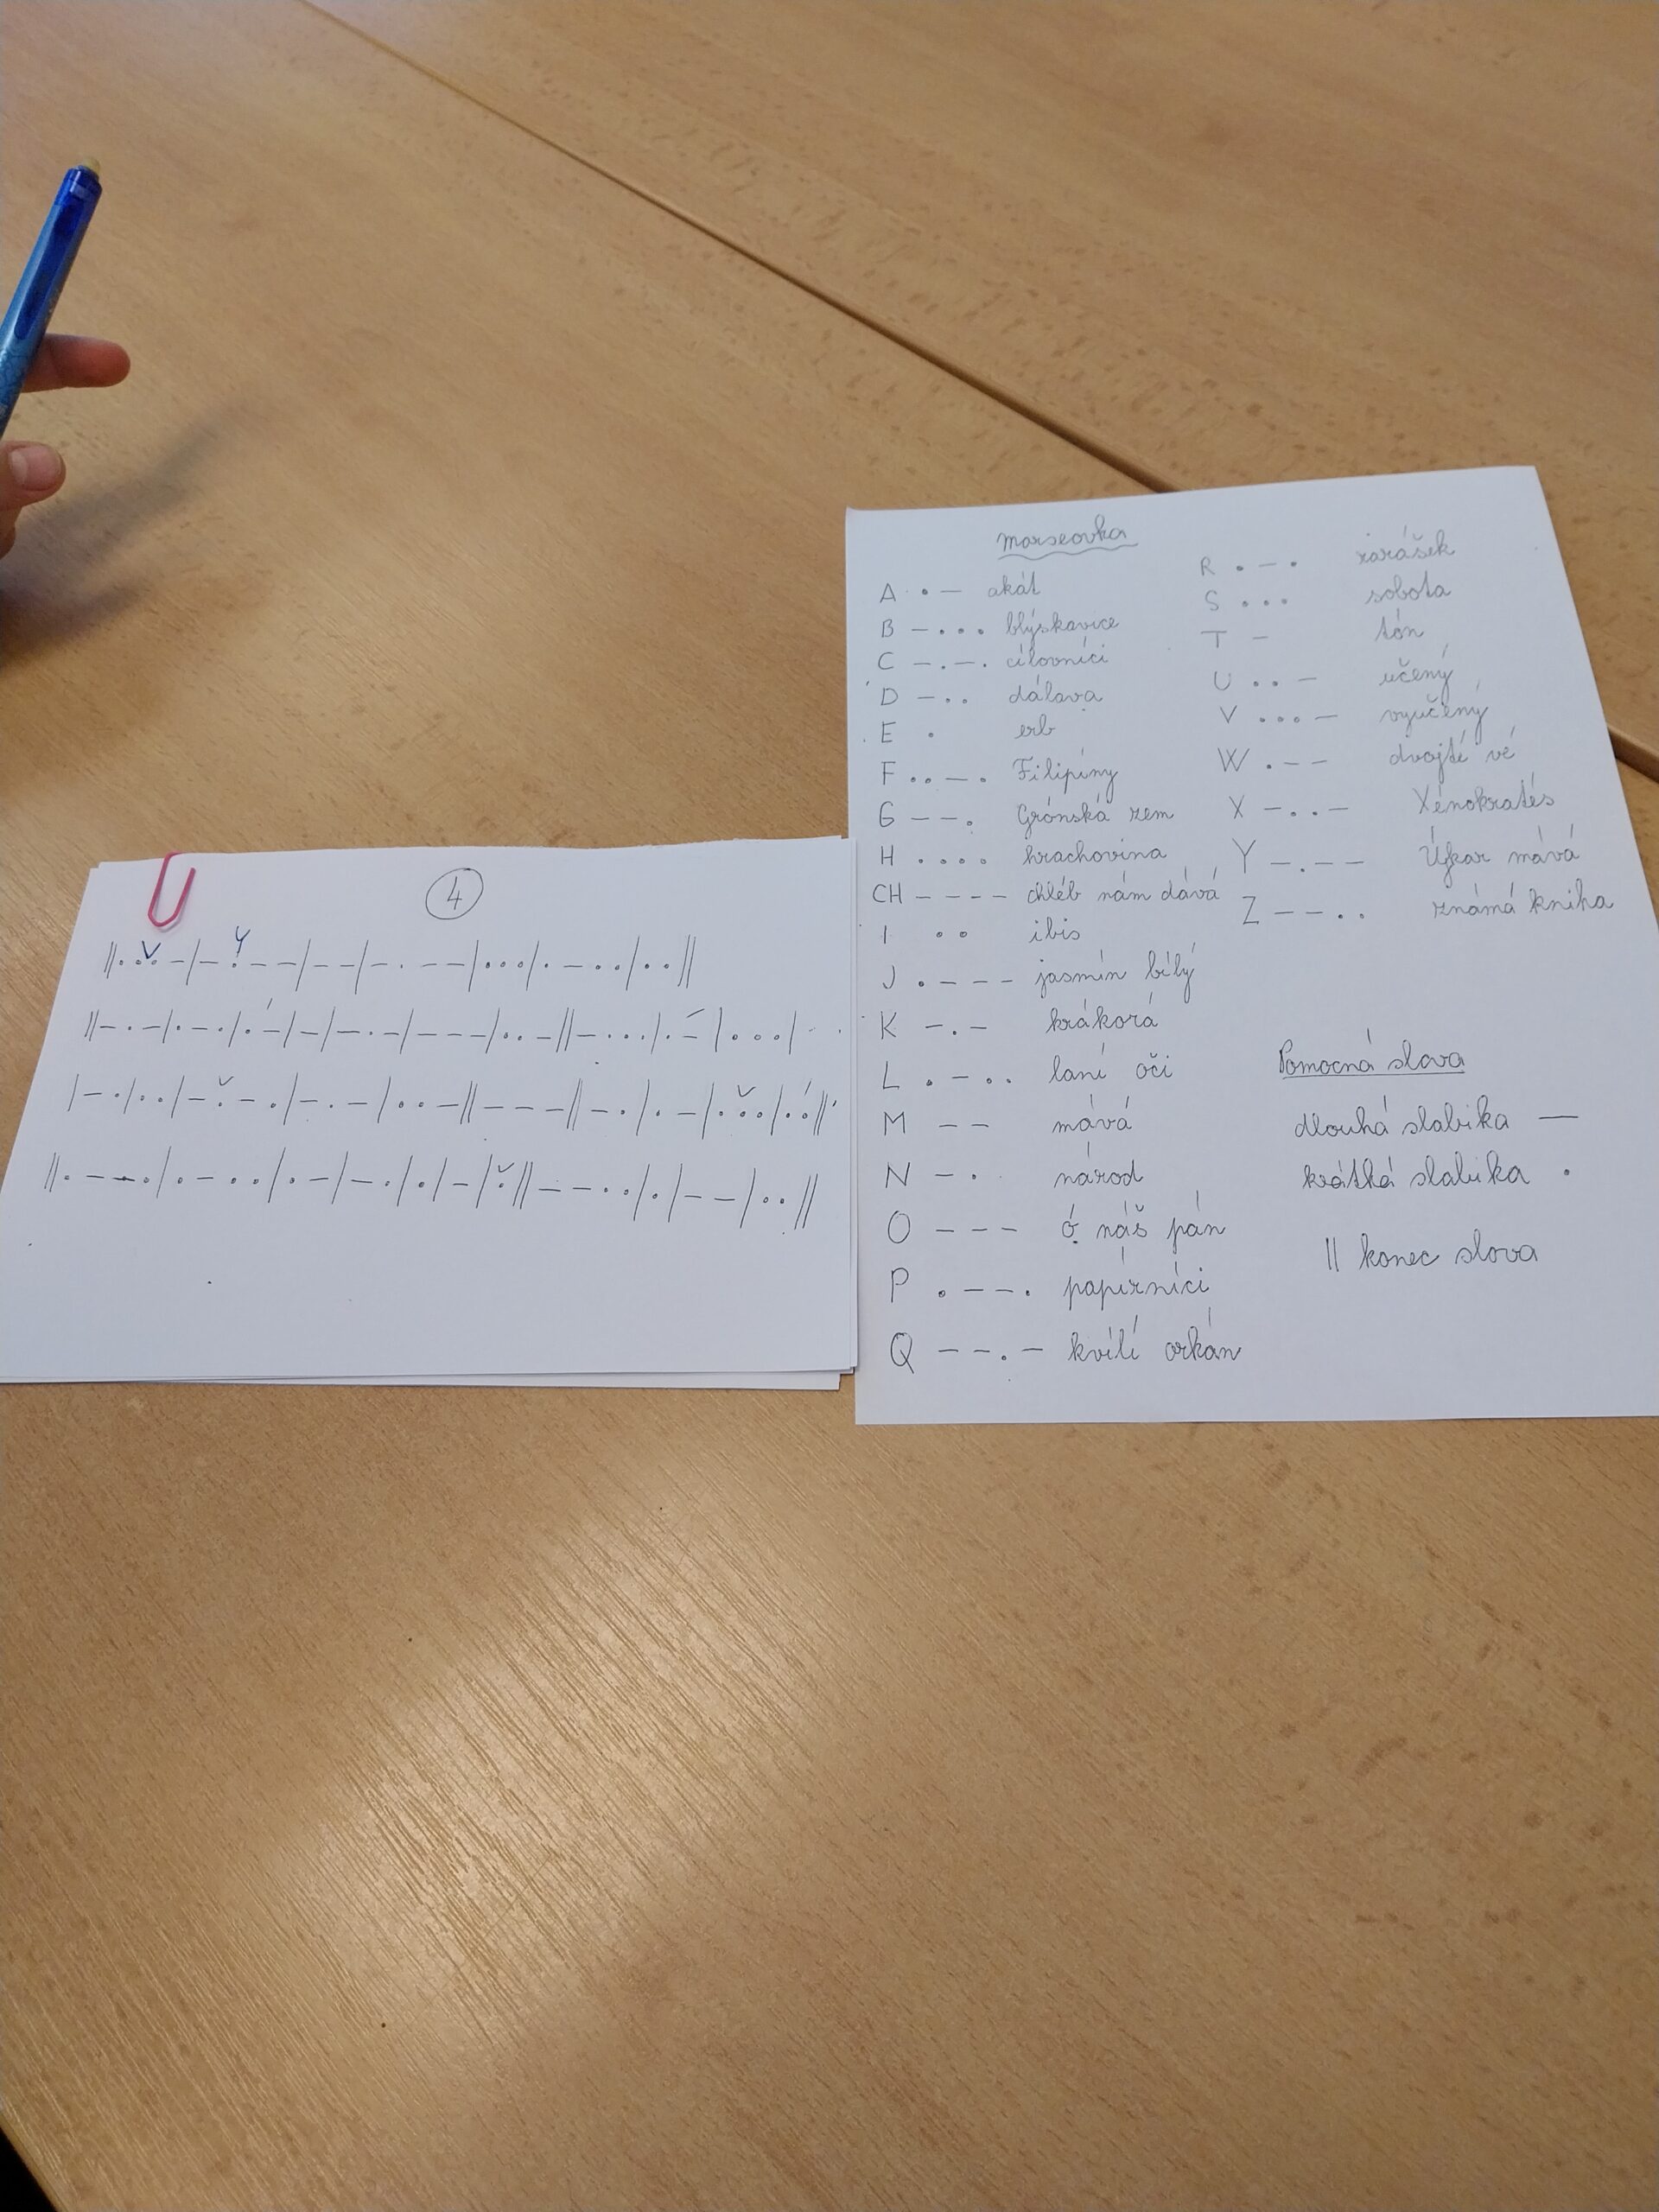 4
V Y
||...-/-.--/--/-.--/.../.-../..||
||-.-/.-./.-/-/-.-./---/..-||-.../.-/.../..
/-./../-.-./-.-/..-||---||-./.-/.../..||
||.--./.-../.-/-./././-/.||--../././--/..||
morseovka
A .- akát
B -... blýskavice
C -.-. cílovníci
D -.. dálava
E . erb
F ..-. Filipíny
G --. Grónská zem
H .... hrachovina
CH ---- chléb nám dává
I .. ibis
J .--- jasmín bílý
K -.- krákorá
L .-.. laní oči
M -- mává
N -. národ
O --- ó náš pán
P .--. papírníci
Q --.- kvílí orkán
R .-. rarášek
S ... sobota
T - tón
U ..- učený
V ...- vyučený
W .-- dvojté vé
X -..- Xénokratés
Y -.-- Ýgar mává
Z --.. známá kniha
Pomocná slova
dlouhá slabika —
krátká slabika .
|| konec slova